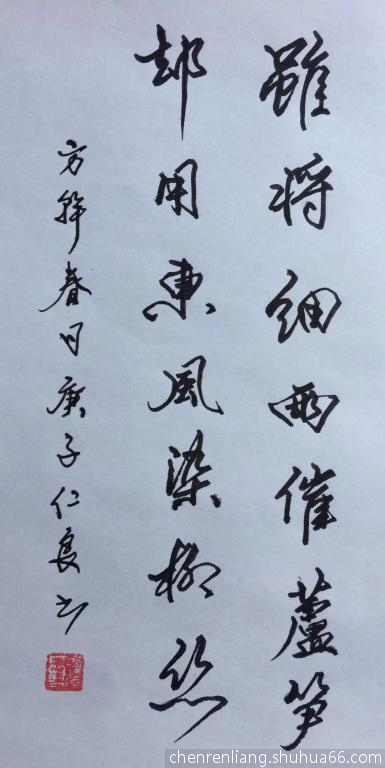 雖将細雨催蘆笋
却用東風染柳絲
方幹春日庚子仁良书
chenrenliang.shuhua66.com